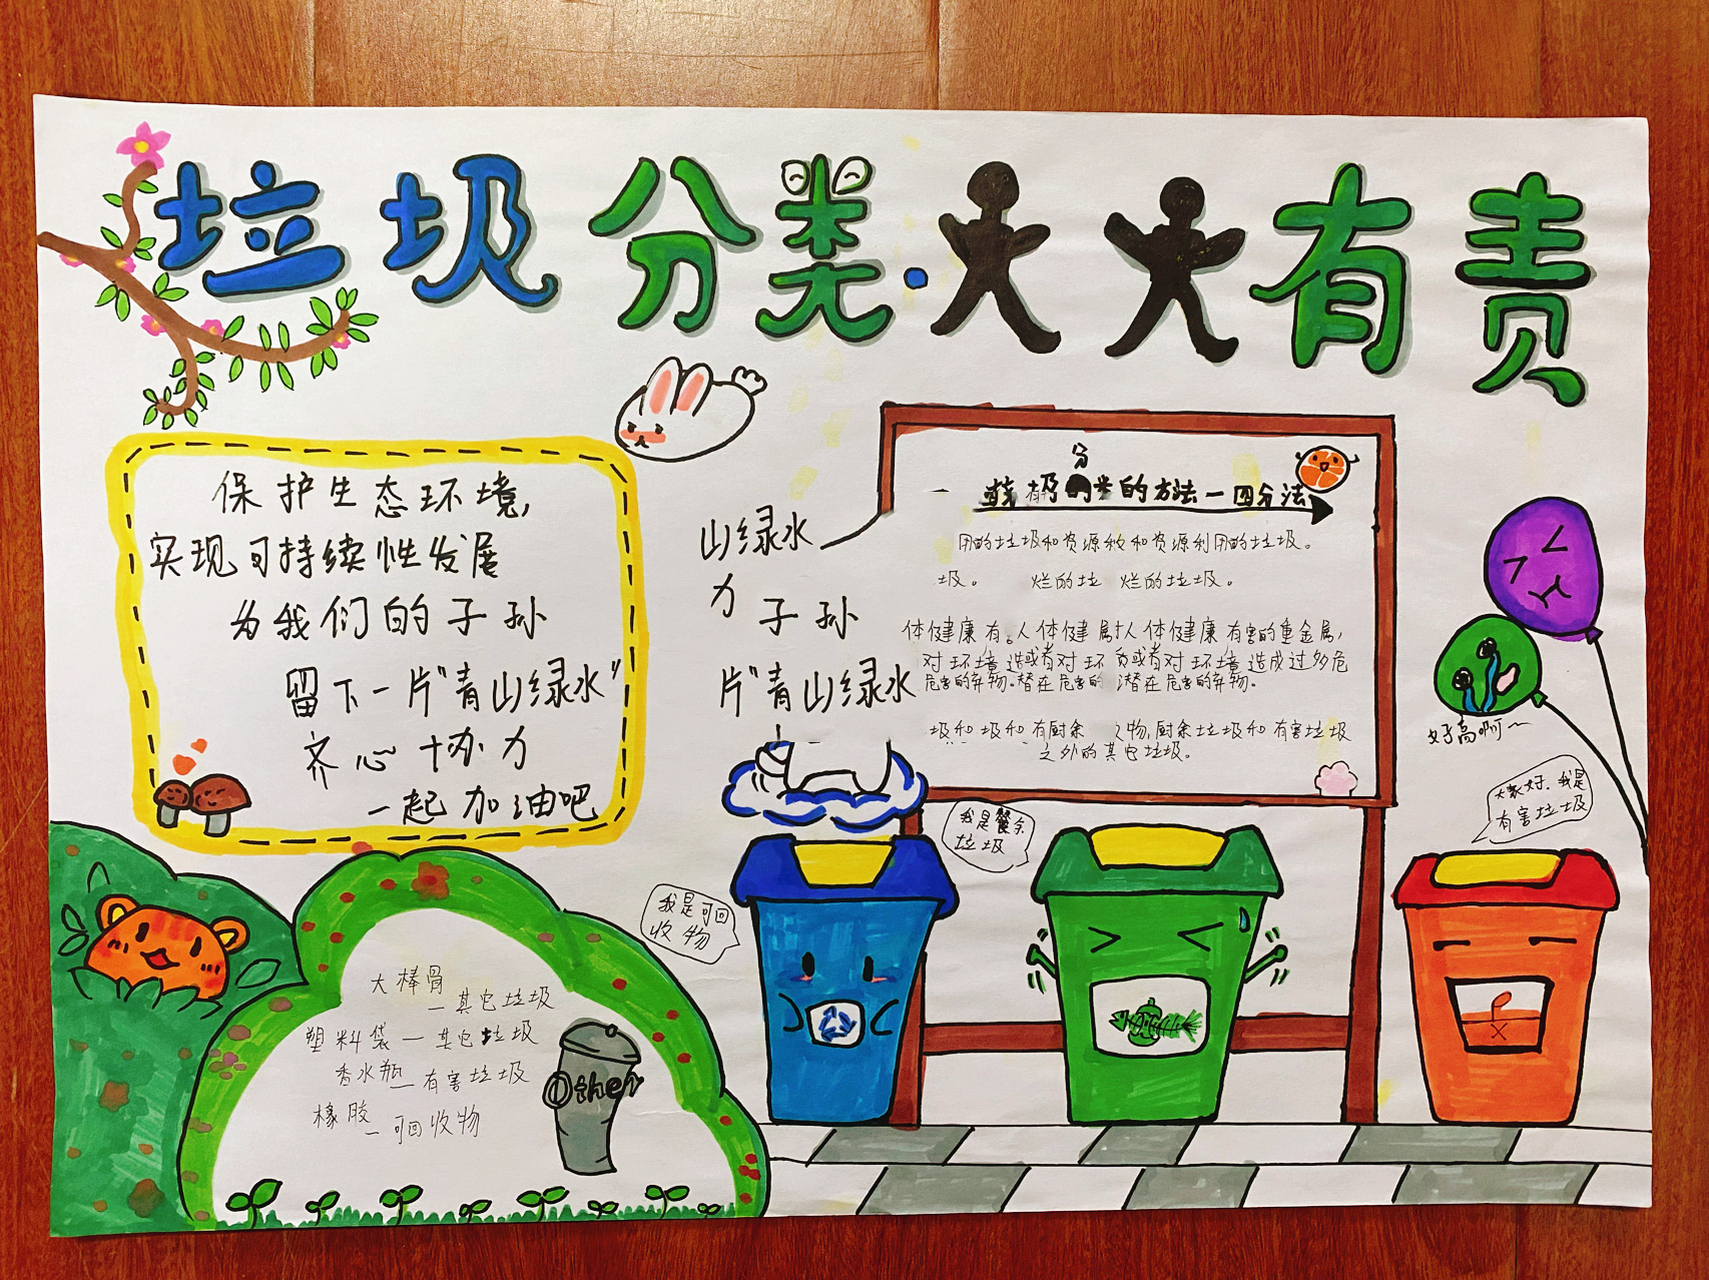 垃圾分类·人人有责
保护生态环境,
实现可持续性发展
为我们的子孙
留下一片"青山绿水"
齐心协力
一起加油吧
山绿水
力
子孙
片"青山绿水
分
的方法一四分法
用的垃圾和资源 和资源利用的垃圾。
圾。 烂的垃 烂的垃圾。
体健康有 人体健 属 人体健康有害的重金属,
对环境造 或者对环 或者对环境造成过多危
危害的弃物。潜在危害的 潜在危害的弃物。
圾和圾和有厨余 物,厨余垃圾和有害垃圾
之外的其它垃圾。
好高啊~
大家好,我是
有害垃圾
我是餐余
垃圾
我是可回
收物
大棒骨
一其它垃圾
塑料袋一其它垃圾
香水瓶一有害垃圾
橡胶一可回收物
Other